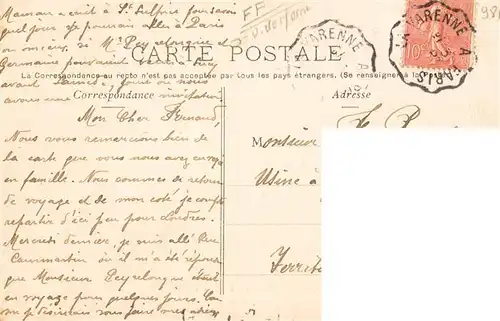 Maman a écrit à St Sulpice pour savoir
quel jour je pourrais aller à Paris
on ou mieux, si Mr Peyrelongue et
Germaine pouvaient
avant Samedi
nous avons une invitation.
FF
CARTE POSTALE
La Correspondance au recto n'est pas acceptée par tous les pays étrangers. (Se renseigner à la Poste)
Correspondance
Adresse
Mon Cher Fernand,
Nous vous remercions bien de
la carte que vous nous avez envoyée
en famille. Nous sommes de retour
de voyage et de mon coté je compte
repartir d'ici peu pour Londres.
Mercredi dernier, je suis allé Rue
Caumartin où il m'a été répondu
que Monsieur Peyrelongue était
en voyage pour quelques jours. Com-
me je désirais vous faire mes adieux
Monsieur
Usine à
Territ
VARENNE A PARIS
VARENNE A PARIS
10c